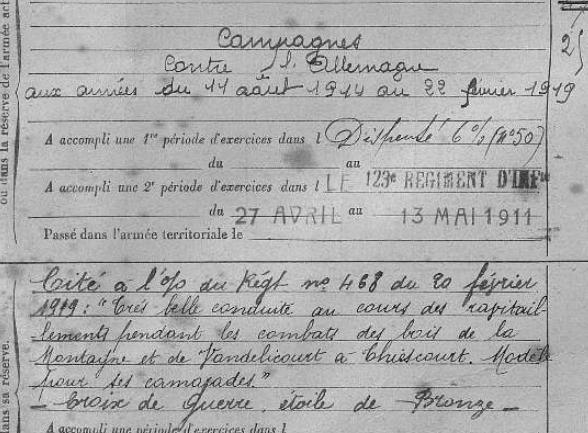 Campagnes
Contre l'Allemagne
aux armées du 11 août 1914 au 22 février 1919
A accompli une 1re période d'exercices dans l Dispensé 6% (n°50)
du au
A accompli une 2e période d'exercices dans l LE 123e REGIMENT D'INFrie
du 27 AVRIL au 13 MAI 1911
Passé dans l'armée territoriale le
Cité à l'o/o du Régt no 468 du 20 février
1919: "Très belle conduite au cours des ravitail-
lements pendant les combats des bois de la
Montagne et de Vandelicourt à Chiescourt. Modèle
pour ses camarades."
_ Croix de Guerre, étoile de Bronze _
A accompli une période d'exercices dans l
ou dans la réserve de l'armée act
dans sa réserve.